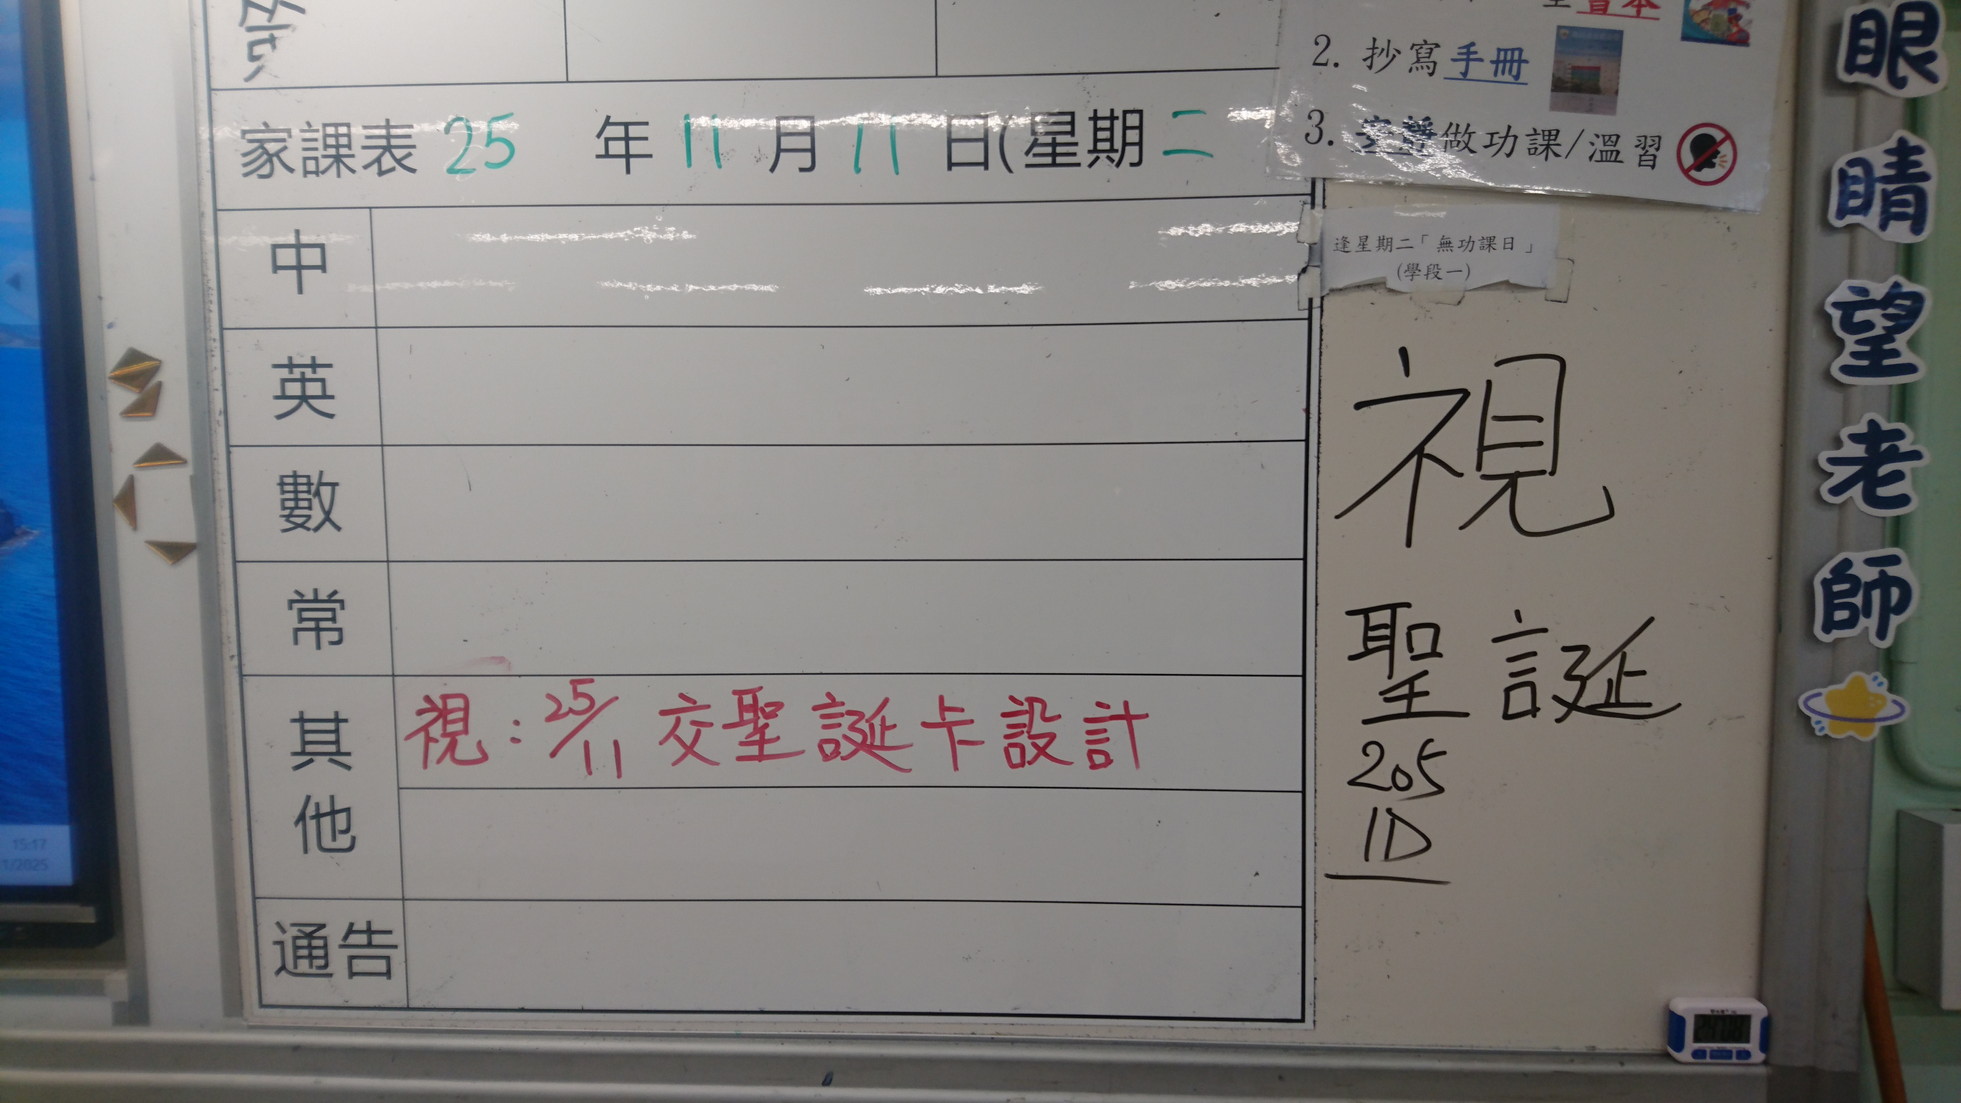 答
家課表 25 年 11 月 11 日(星期二
中
英
數
常
其他
視：25/11 交聖誕卡設計
通告
2. 抄寫手冊
3. 安靜做功課/溫習
逢星期二「無功課日」
(學段一)
視
聖誕
205
1D
眼睛望老師
15:17
1/2025